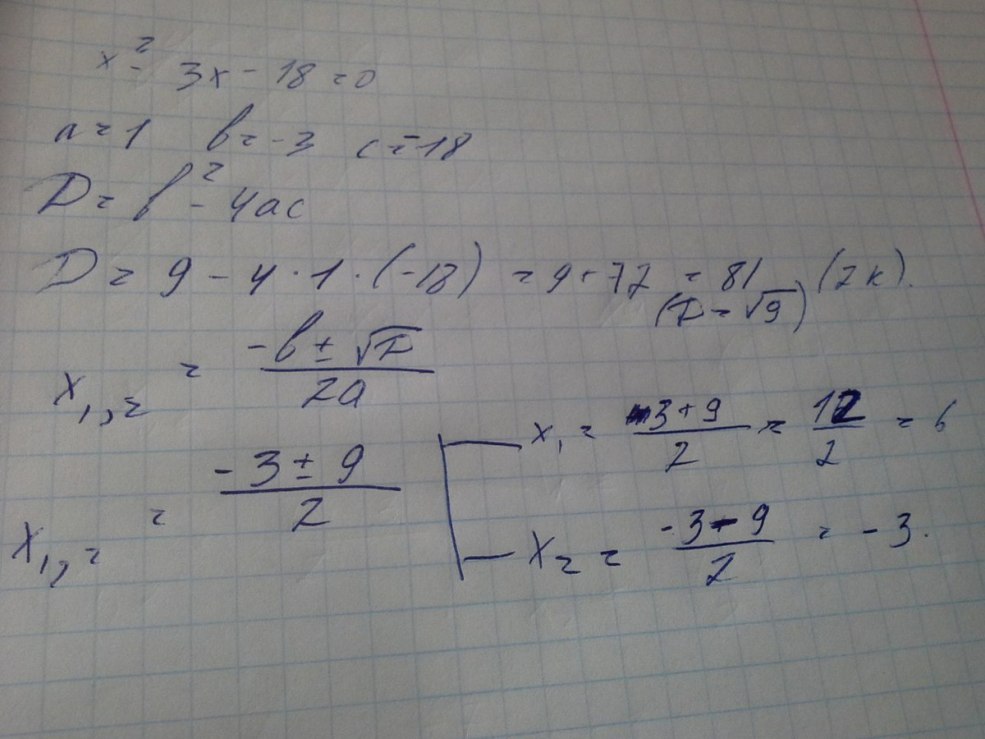 x² - 3x - 18 = 0
a = 1 b = -3 c = -18
D = b² - 4ac
D = 9 - 4 · 1 · (-18) = 9 + 72 = 81 (2к).
(D = √9)
x₁,₂ = (-b ± √D) / 2a
x₁,₂ = (-3 ± 9) / 2
x₁ = (3 + 9) / 2 = 12 / 2 = 6
x₂ = (-3 - 9) / 2 = -3.